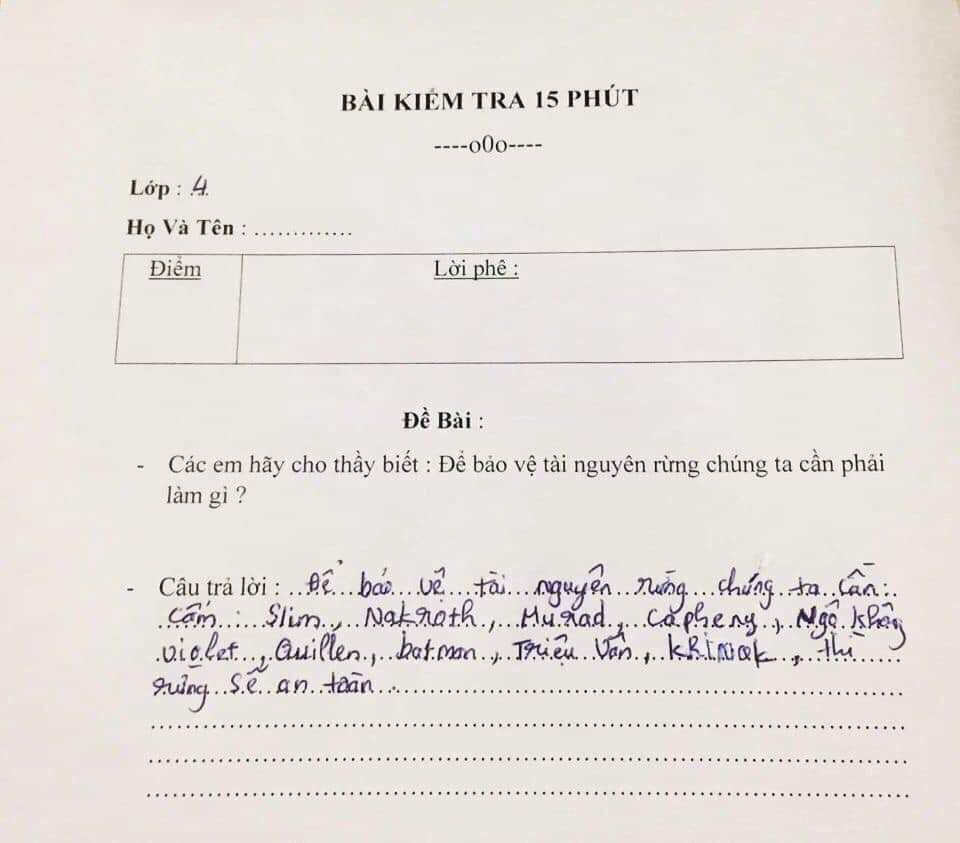 BÀI KIỂM TRA 15 PHÚT
----o0o----
Lớp : 4
Họ Và Tên : .............
Điểm
Lời phê :
Đề Bài :
- Các em hãy cho thầy biết : Để bảo vệ tài nguyên rừng chúng ta cần phải
làm gì ?
- Câu trả lời : Để bảo vệ tài nguyên rừng chúng ta cần:
Cấm : Slim, Nakroth, Murad, Capheny, Ngộ không
violet, Quillen, batman, Triệu Vân, KRINak, thì
rừng sẽ an toàn